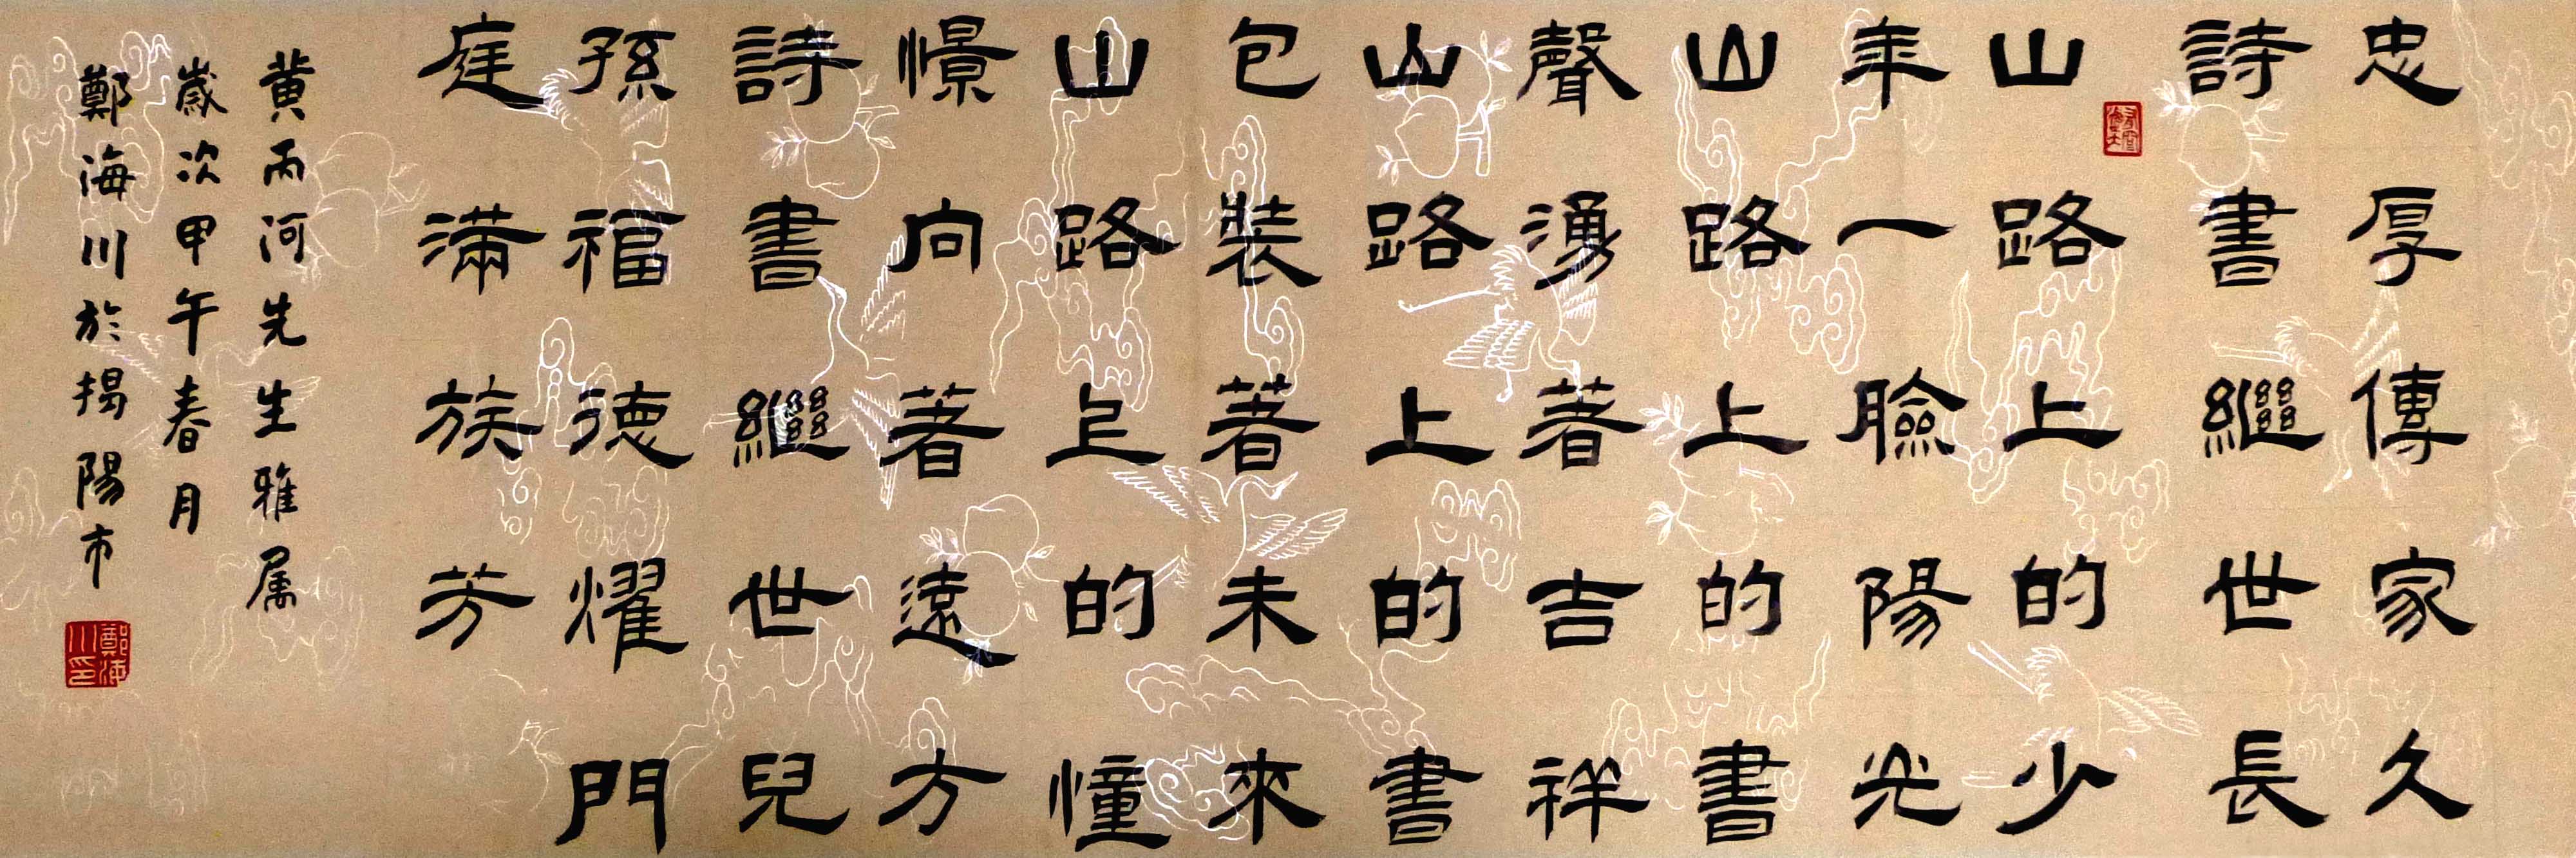 忠厚傳家久
詩書繼世長
山路上的少
年一臉陽光
山路上的書
聲湧著吉祥
山路上的書
包裝著未來
山路上的憧
憬向著遠方
詩書繼世兒
孫福德耀門
庭滿族芳
黄丙河先生雅属
歲次甲午春月
鄭海川於揭陽市
鄭海川印